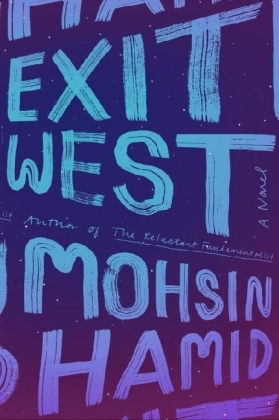 HAM
EXIT
WEST
A Novel
Author of The Reluctant Fundamentalist
MOHSIN
HAMID